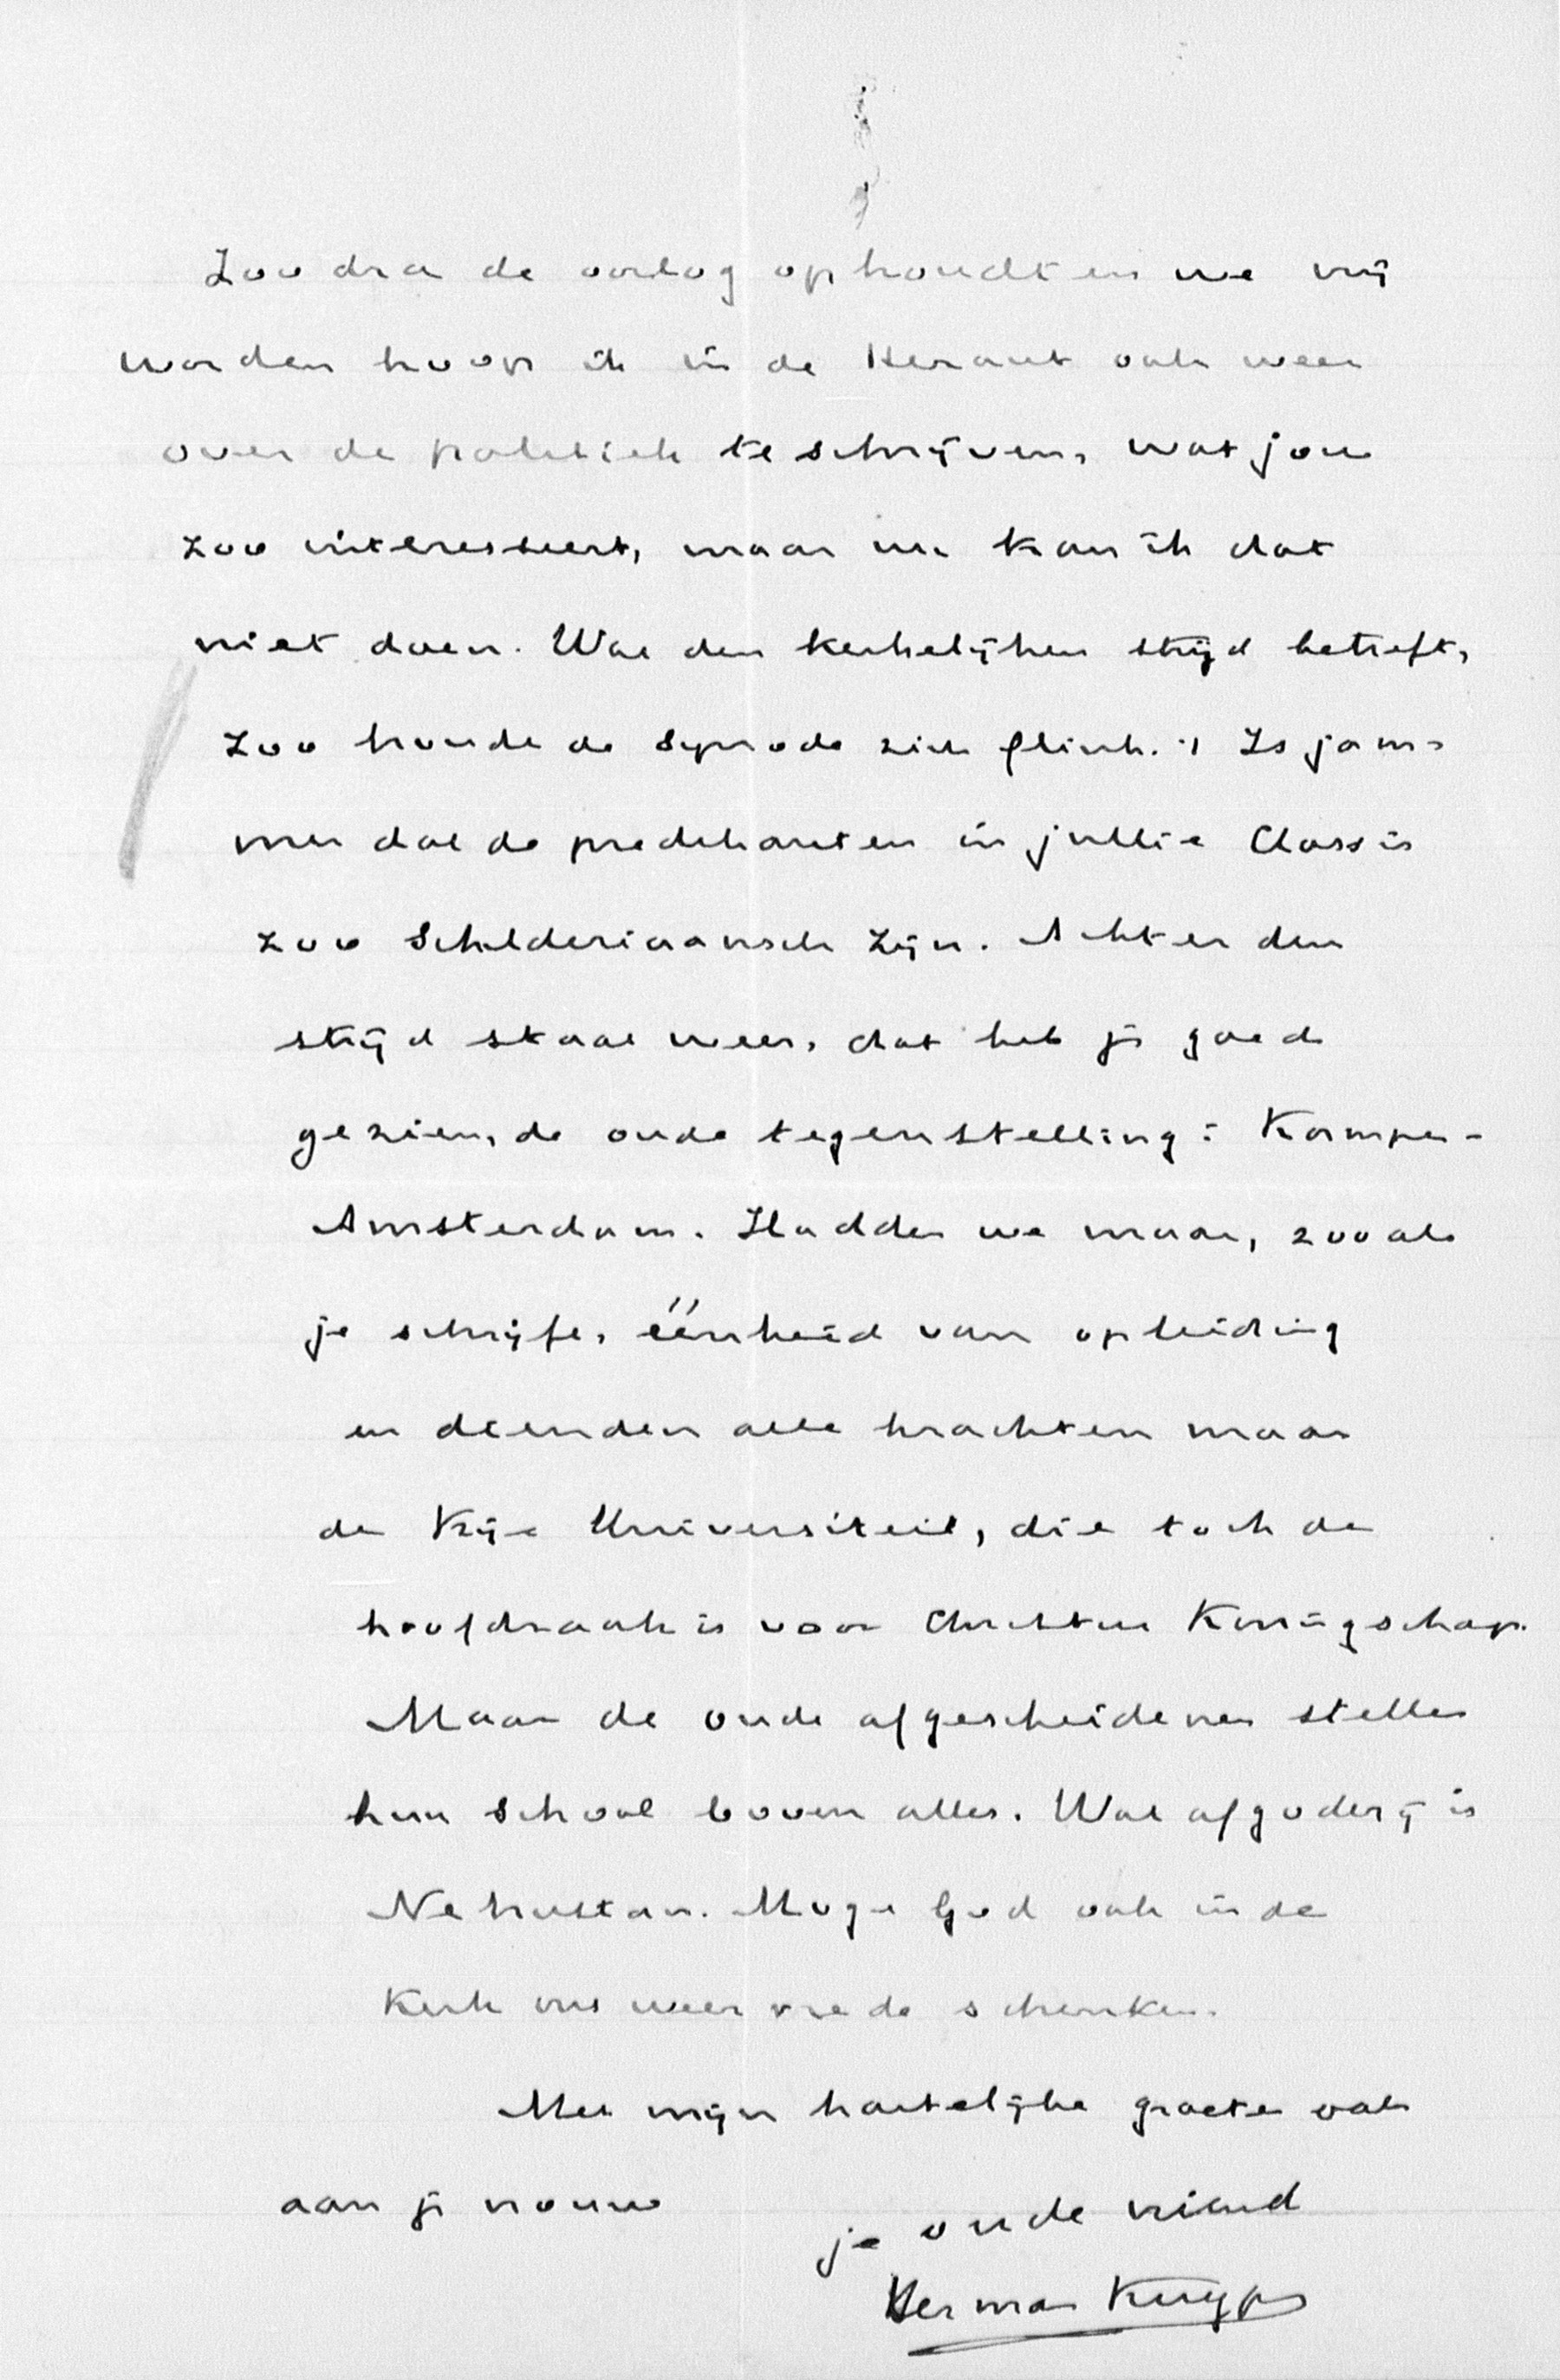 Zoodra de oorlog ophoudt en we vrij
worden hoop ik in de Heraut ook weer
over de politiek te schrijven, wat jou
zoo interesseert, maar nu kan ik dat
niet doen. Wat den kerkelijken strijd betreft,
zoo houde de Synode zich flink. 't Is jam-
mer dat de predikanten in jullie Classis
zoo Schilderiaansch zijn. Achter den
strijd staat weer, dat heb je goed
gezien, de oude tegenstelling: Kampen-
Amsterdam. Hadden we maar, zooals
je schrijft, éénheid van opleiding
en dienden alle krachten maar
de Vrije Universiteit, die toch de
hoofdzaak is voor Christus Koningschap.
Maar de oude afgescheidenen stellen
hun school boven alles. Wat afgoderij is
Nehustan. Moge God ook in de
Kerk ons weer vrede schenken.
Met mijn hartelijke groeten ook
aan je vrouw
je oude vriend
Herman Kuyper